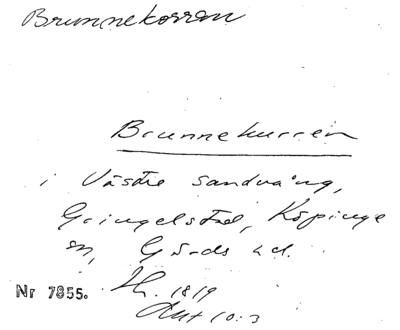 Brunnekorren
Brunnekurren
i Västre sandvång,
Gringelstad, Köpinge
sn, Gärds hd.
Nr 7855. 1819
Akt 10:3